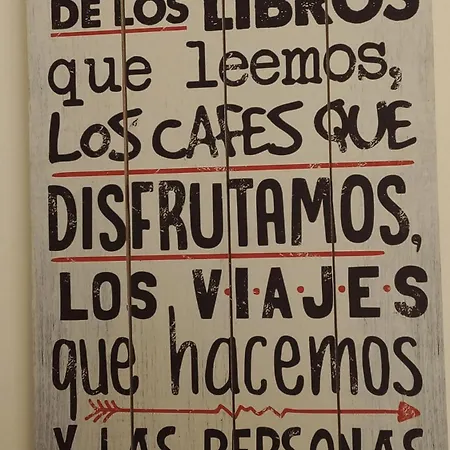 DE LOS LIBROS
que leemos,
LOS CAFES QUE
DISFRUTAMOS,
LOS V·I·A·J·E·S
que hacemos
Y LAS PERSONAS